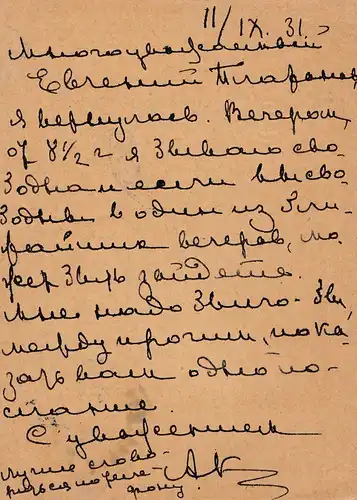 11/IX. 31.
Многоуважаемый
Евгений Платонов.
я вернулась. Вечером,
от 8½ г я бываю сво-
бодна и если вы сво-
бодны в один из бли-
жайших вечеров, мо-
жет быть зайдете.
Мне надо было-бы,
между прочим, пока-
зать вам одно по-
слание.
С уважением
лучше сгово-
риться по теле-
фону.